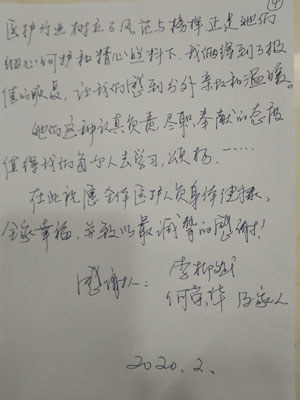 ④
医护行业树立了风范与榜样正是她们
细心呵护和精心照料下.我们得到了极
佳的恢复,让我们感到分外亲切和温暖。
她们这种认真负责,尽职,奉献的态度
值得我们每个人去学习,颂扬......
在此祝愿全体医护人员身体健康、
全家幸福,并致以最诚挚的感谢!
感谢人: 李柳
何荣华 及家人
2020.2.